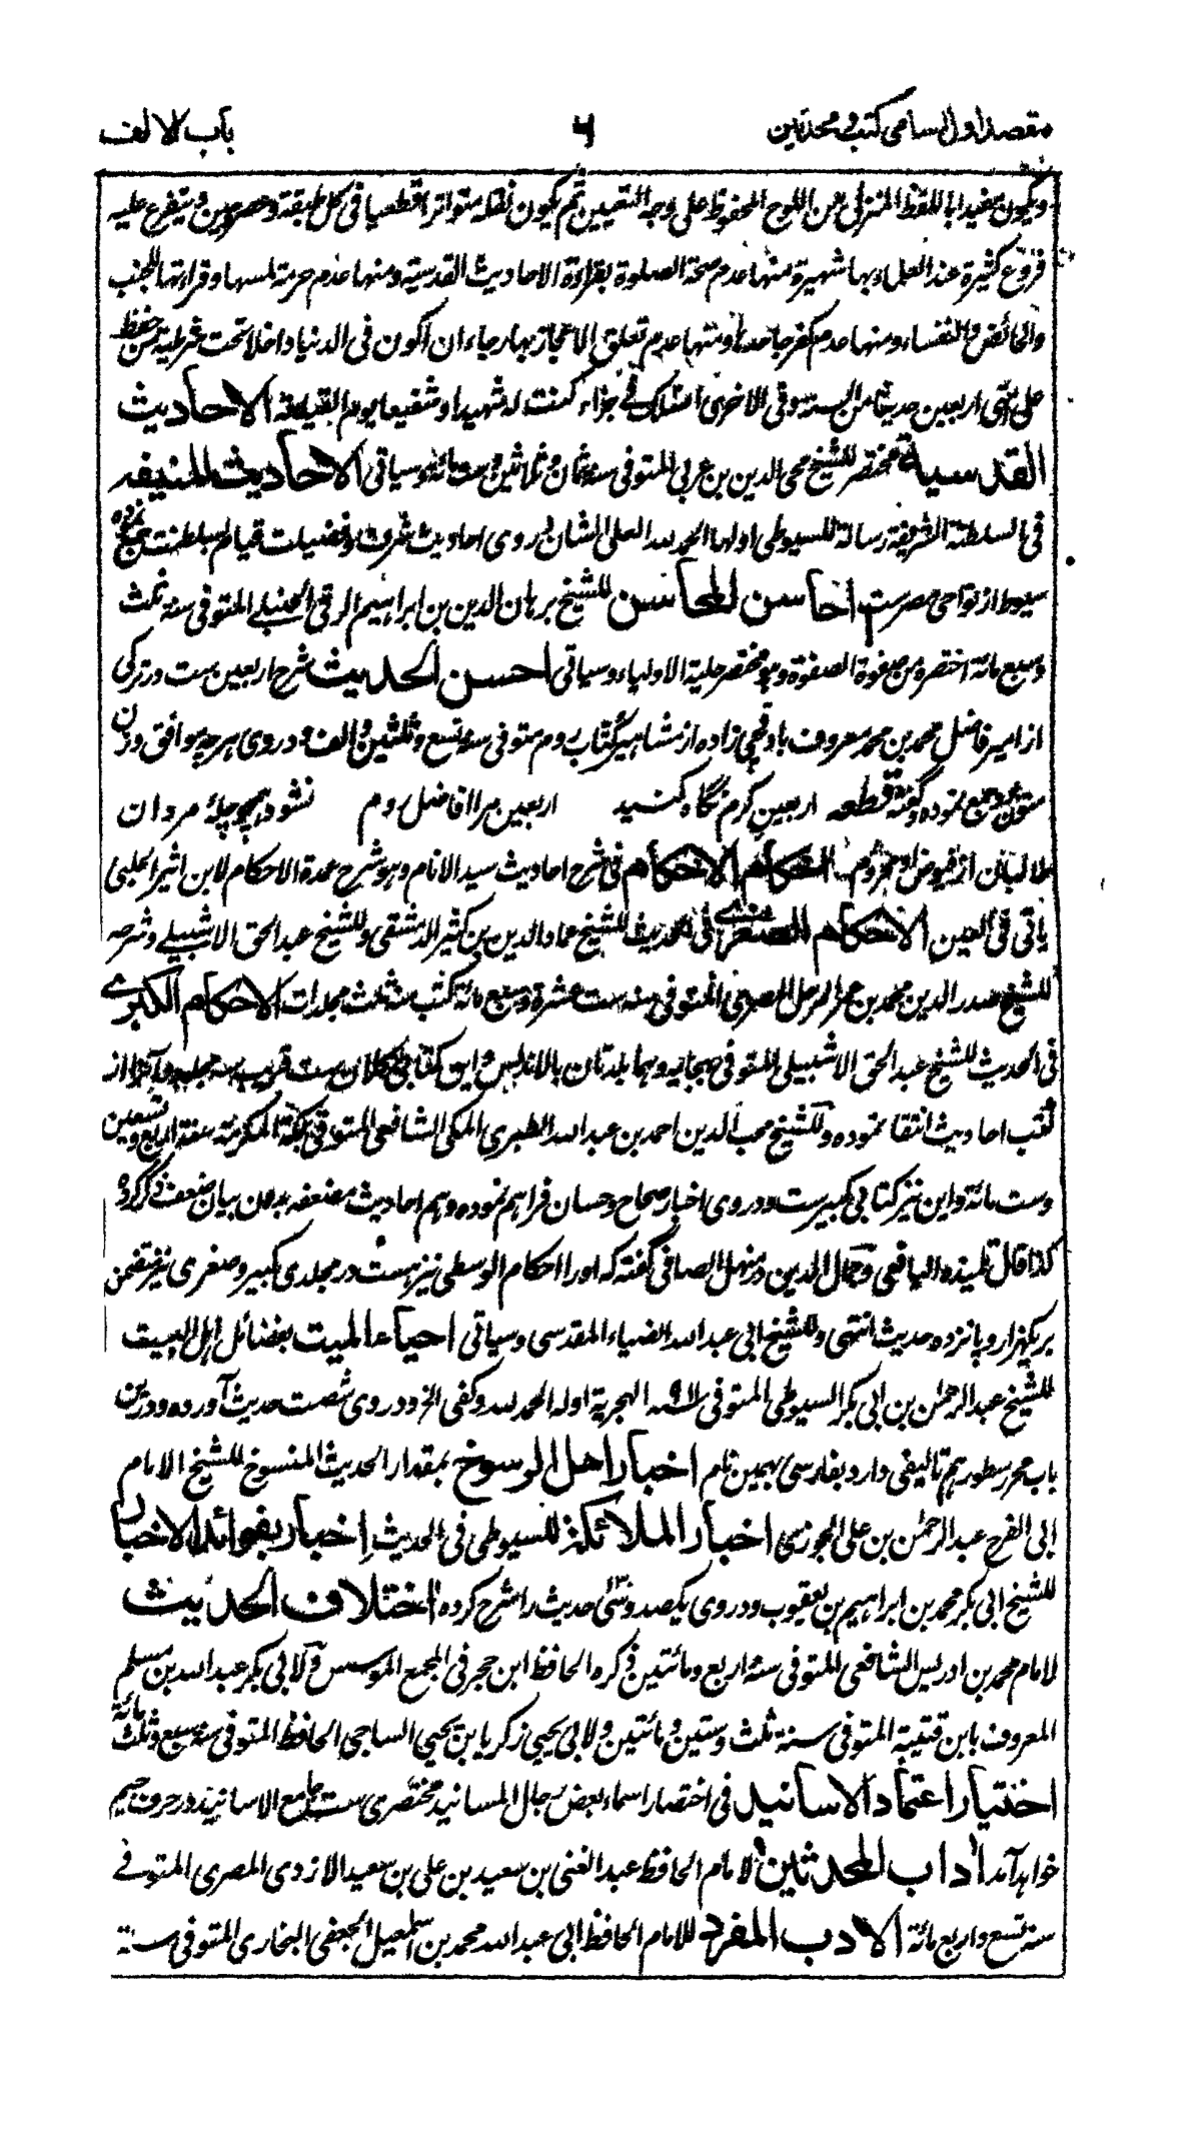 مقصد اول اسامی کتب و محدثین ٦ باب الالف
ویکون مقیدا باللفظ المنزل من اللوح المحفوظ علی وجه التعیین ثم یکون نقله متواترا قطعیا فی کل طبقة وعصر وحین ویتفرع علیه
فروع کثیرة عند العلماء بها شهیرة منها عدم صحة الصلوة بقراءة الاحادیث القدسیة ومنها عدم حرمة لمسها وقراءتها للجنب
والحائض والنفساء ومنها عدم کفر جاحدها ومنها عدم تعلق الاعجاز بها رجاء ان اکون فی الدنیا داخلا تحت شرطیة من حفظ
علی امتی اربعین حدیثا من السنة وفی الاخری انسلک فی جزاء کنت له شهیدا وشفیعا یوم القیامة الاحادیث
القدسیة مختصر للشیخ محی الدین بن عربی المتوفی سنة ثمان وثلاثین وست مائة وسیاتی الاحادیث المنیفه
فی السلطنة الشریفة رسالة للسیوطی اولها الحمد لله العلی الشان در وی احادیث شرف وفضیلت قیام بسلطنت جمع نموده
سیوط از نواحی مصرست احاسن المحاسن للشیخ برهان الدین بن ابراهیم الرقی الحنبلی المتوفی سنة ثلث
وسبع مائة اختصره من صفوة الصفوة وهو مختصر حلیة الاولیاء وسیاتی احسن الحدیث شرح اربعین ست در ترکی
از امیر فاضل محمد بن محمد معروف باوقچی زاده از مشاهیر کتاب روم متوفی سنة تسع وثلثین والف ودروی هرچه موافق وزن
ستون جمع نموده وگفته قطعه اربعین کرم نگاه کنید اربعین مرا افاضل روم نشود همچو چلۀ مردان
طالبان از فیوض او محروم احکام الاحکام فی شرح احادیث سید الانام وهو شرح عمدة الاحکام لابن اثیر الحلبی
یاتی فی العین الاحکام الصغری فی الحدیث للشیخ عماد الدین بن کثیر الدمشقی وللشیخ عبدالحق الاشبیلی وشرحه
للشیخ صدر الدین محمد بن عمر المرحل المصری المتوفی سنة ست عشرة وسبع مائة کتب منه ثلث مجلدات الاحکام الکبری
فی الحدیث للشیخ عبدالحق الاشبیلی المتوفی ببجایه وهما بلدتان بالاندلس واین کتابی کلان ست قریب سه جلد وآنرا از
کتب احادیث انتقا نموده وللشیخ محب الدین احمد بن عبدالله الطبری المکی الشافعی المتوفی بمکة المکرمة سنة اربع وتسعین
وست مائة واین نیز کتابی کبیرست ودروی اخبار صحاح وحسان فراهم نموده وهم احادیث مضعفه بدون بیان ضعف ذکر کرده
کذا قال تلمیذه الیافعی وجمال الدین در منهل الصافی گفته که اورا احکام الوسطی نیز هست در مجلدی کبیر وصغری نیز متضمن
بر یکهزار وپانزده حدیث انتهی وللشیخ ابی عبدالله الضیاء المقدسی وسیاتی احیاء المیت بفضائل اهل البیت
للشیخ عبدالرحمن بن ابی بکر السیوطی المتوفی سنة ٩١١ الهجریة اوله الحمد لله وکفی الخ ودروی شصت حدیث آورده ودرین
باب محرر سطور هم تالیفی دارد بفارسی بهمین نام اخبار اهل الرسوخ بمقدار الحدیث المنسوخ للشیخ الامام
ابی الفرج عبدالرحمن بن علی الجوزی اخبار الملائکة للسیوطی فی الحدیث اخبار بفوائد الاخبار
للشیخ ابی بکر محمد بن ابراهیم بن یعقوب ودروی یکصد وسی حدیث را شرح کرده اختلاف الحدیث
لامام محمد بن ادریس الشافعی المتوفی سنة اربع ومائتین ذکره الحافظ ابن حجر فی المجمع المؤسس ولابی بکر عبدالله بن مسلم
المعروف بابن قتیبة المتوفی سنة ثلث وستین ومائتین ولابی یحیی زکریا بن یحیی الساجی الحافظ المتوفی سنة سبع وثلث مائة
اختیار اعتماد الاسانید فی اختصار اسماء بعض رجال المسانید مختصری ست جامع الاسانید در حرف جیم
خواهد آمد اداب المحدثین لامام الحافظ عبدالغنی بن سعید بن علی بن سعید الازدی المصری المتوفی
سنة تسع واربع مائة الادب المفرد للامام الحافظ ابی عبدالله محمد بن اسمعیل الجعفی البخاری المتوفی سنة